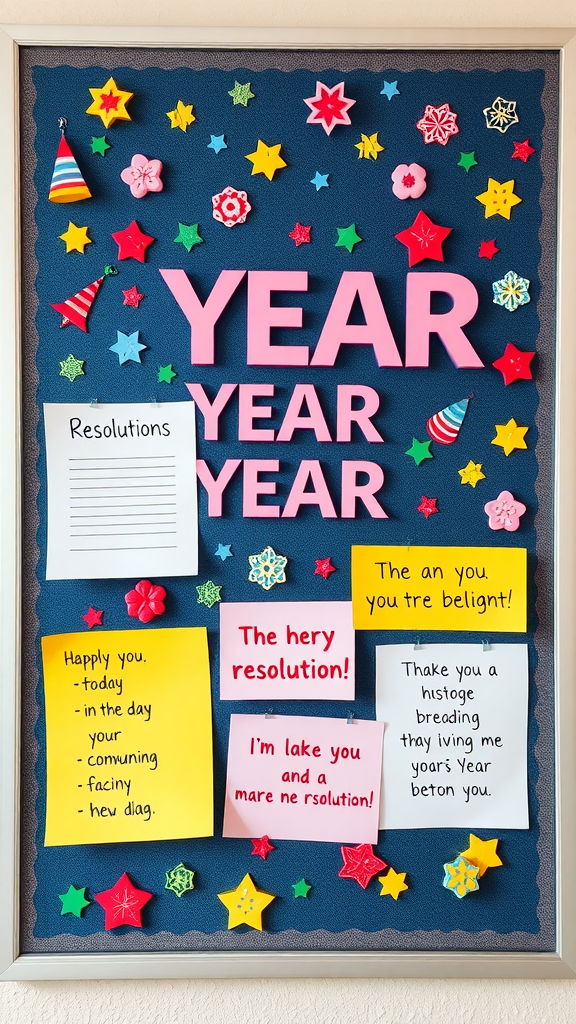 YEAR
YEAR
YEAR
Resolutions
The an you.
you tre belight!
The hery
resolution!
Happly you.
- today
- in the day
your
- comwuning
- faciny
- hew dlag.
I'm lake you
and a
mare ne rsolution!
Thake you a
histoge
breading
thay iving me
yoars Year
beton you.